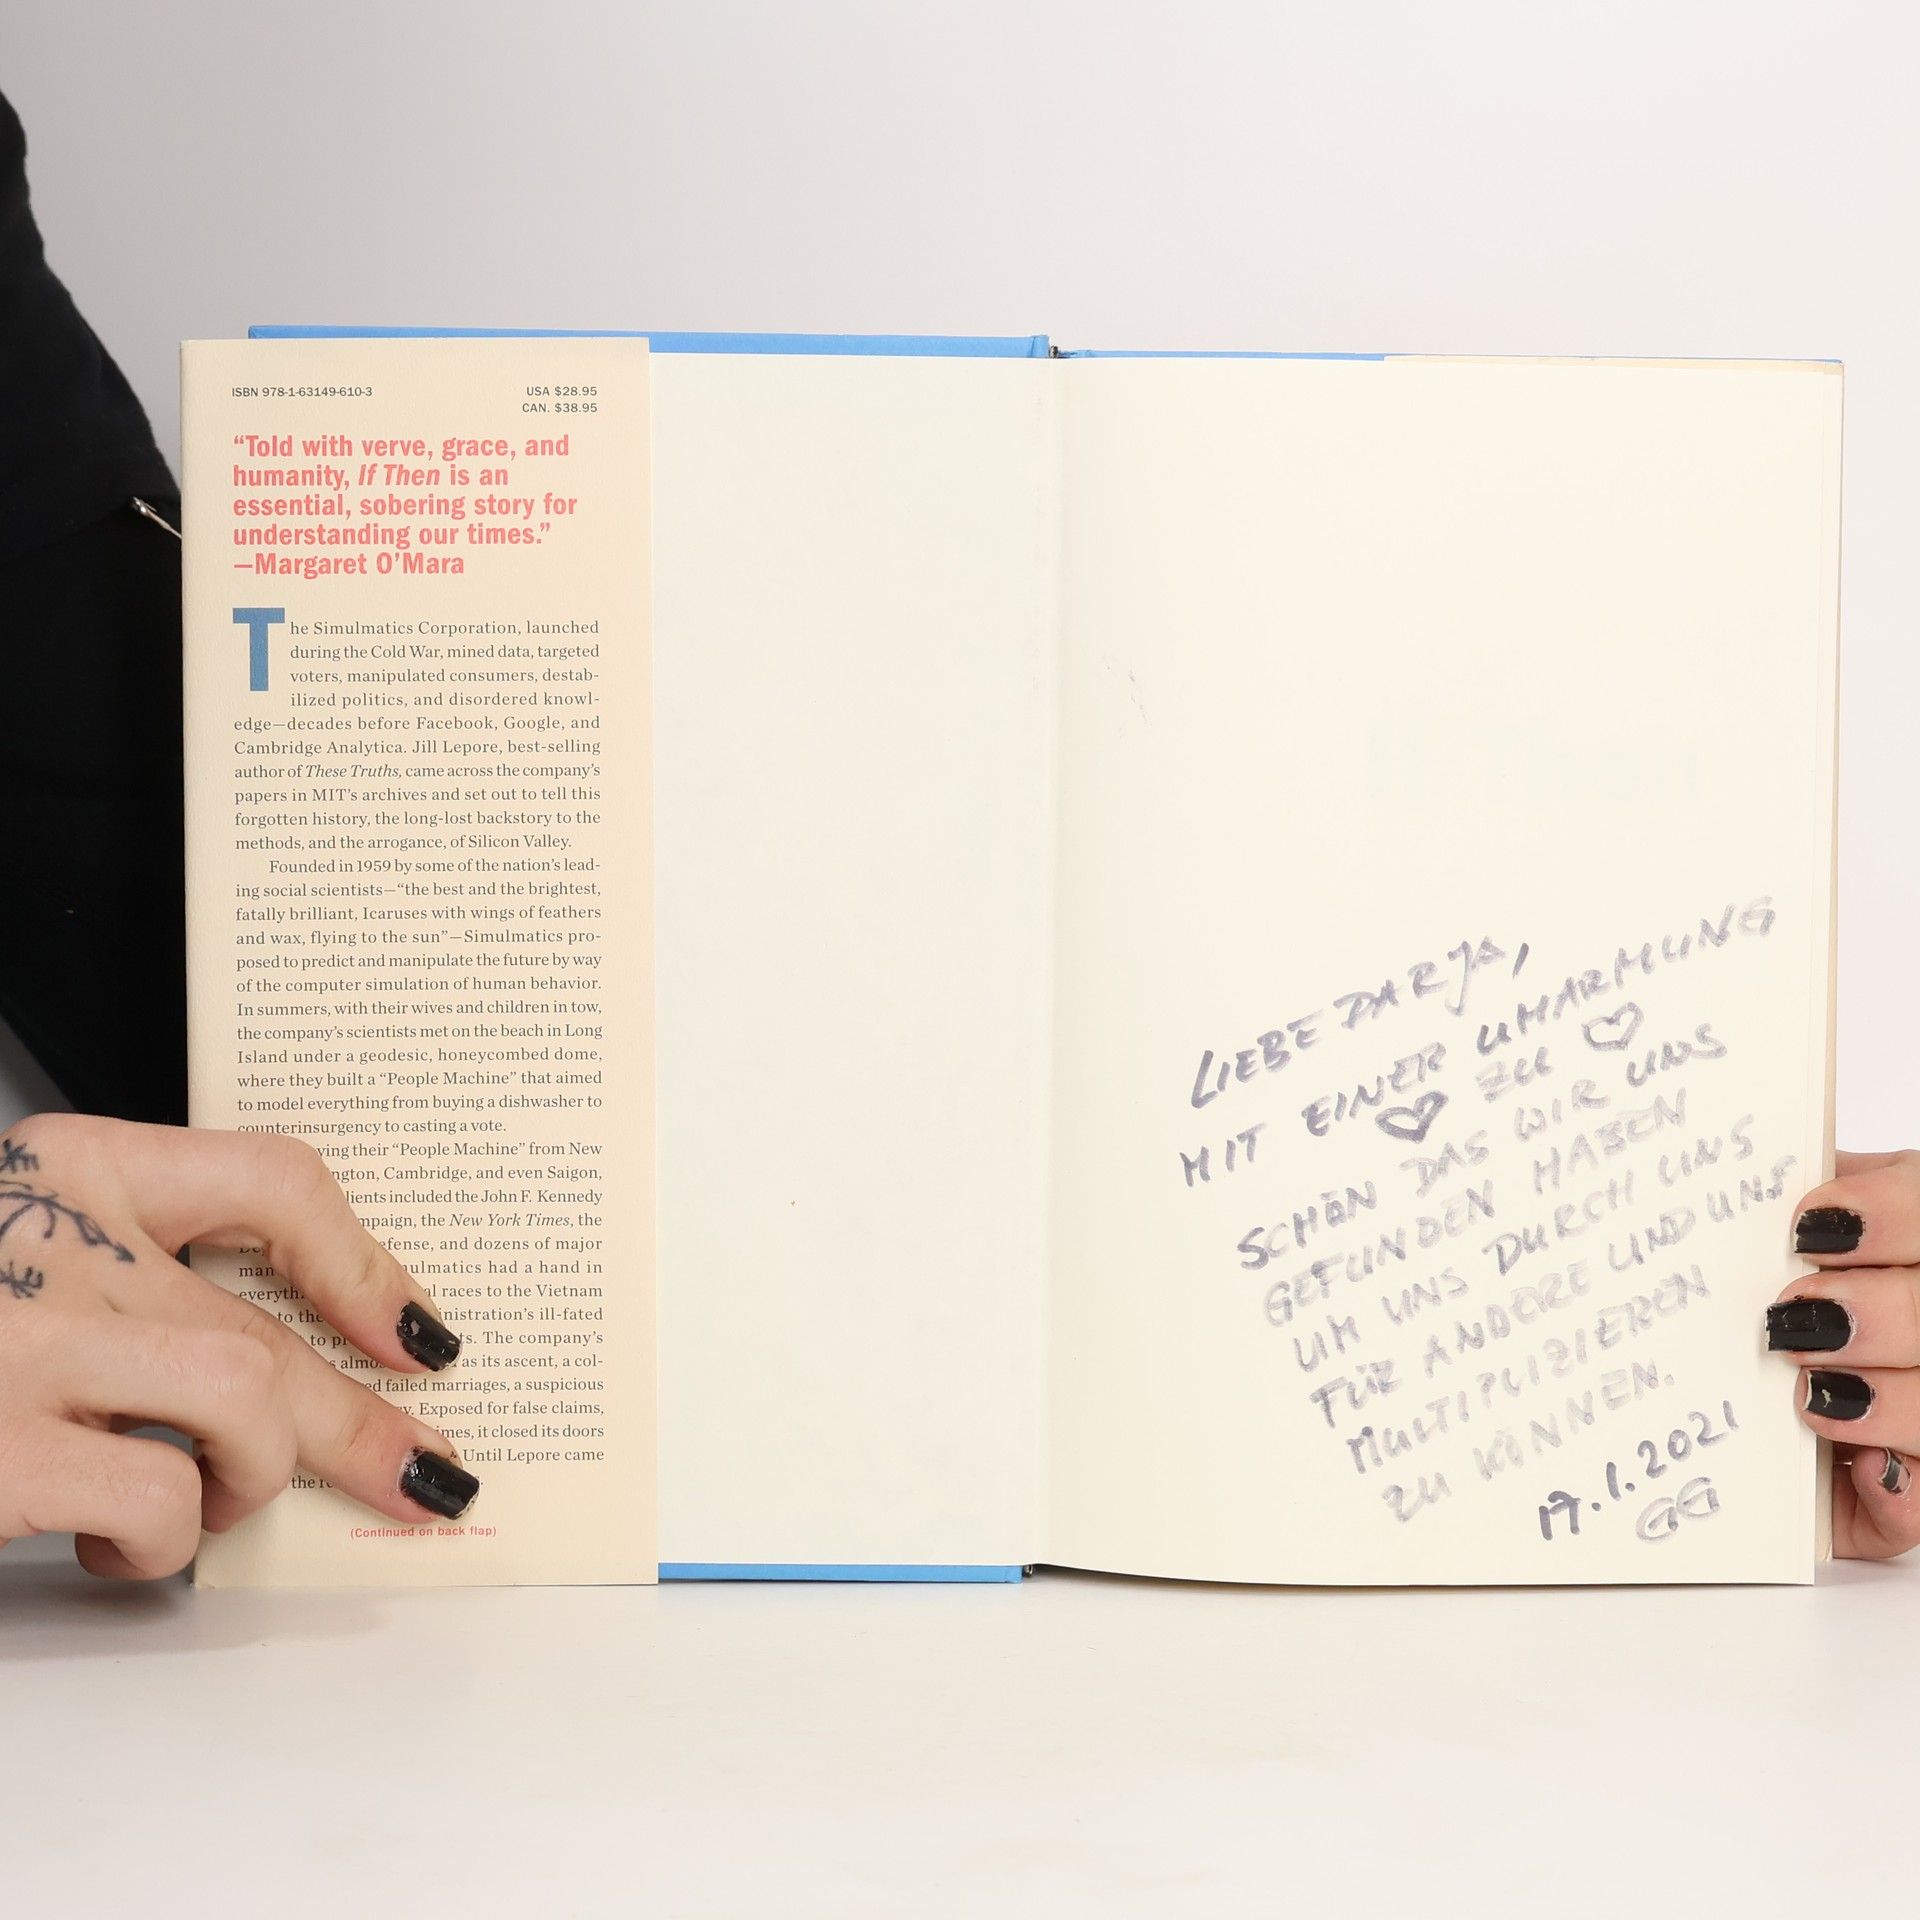 ISBN 978-1-63149-610-3
USA $28.95
CAN. $38.95
“Told with verve, grace, and
humanity, If Then is an
essential, sobering story for
understanding our times.”
—Margaret O’Mara
The Simulmatics Corporation, launched
during the Cold War, mined data, targeted
voters, manipulated consumers, destab-
ilized politics, and disordered knowl-
edge—decades before Facebook, Google, and
Cambridge Analytica. Jill Lepore, best-selling
author of These Truths, came across the company’s
papers in MIT’s archives and set out to tell this
forgotten history, the long-lost backstory to the
methods, and the arrogance, of Silicon Valley.
Founded in 1959 by some of the nation’s lead-
ing social scientists—“the best and the brightest,
fatally brilliant, Icaruses with wings of feathers
and wax, flying to the sun”—Simulmatics pro-
posed to predict and manipulate the future by way
of the computer simulation of human behavior.
In summers, with their wives and children in tow,
the company’s scientists met on the beach in Long
Island under a geodesic, honeycombed dome,
where they built a “People Machine” that aimed
to model everything from buying a dishwasher to
counterinsurgency to casting a vote.
their “People Machine” from New
Cambridge, and even Saigon,
included the John F. Kennedy
the New York Times, the
and dozens of major
had a hand in
races to the Vietnam
ill-fated
to The company’s
as its ascent, a col-
failed marriages, a suspicious
Exposed for false claims,
it closed its doors
Until Lepore came
the
(Continued on back flap)
LIEBE DARJA,
MIT EINER UMARMUNG
♥ ZU ♥
SCHÖN DAS WIR UNS
GEFUNDEN HABEN
UM UNS DURCH UNS
FÜR ANDERE UND UNS
MULTIPLIZIEREN
ZU KÖNNEN.
17.1.2021
GG